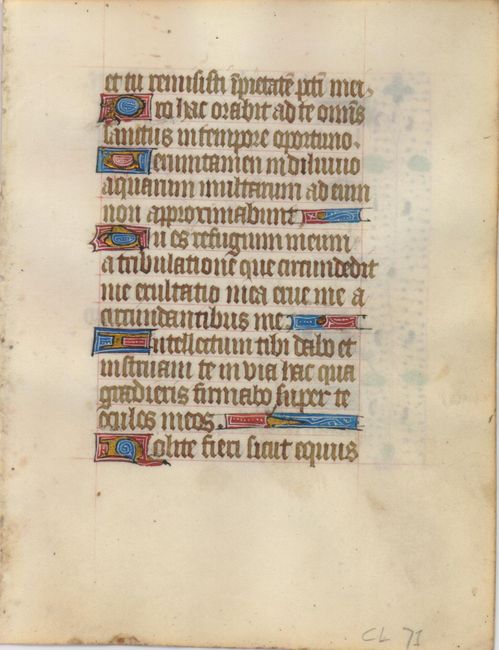 et tu remisisti īpietatē pcti mei.
Pro hac orabit ad te omīs
sanctus in tempore oportuno.
Veruntamen in diluuio
aquarum multarum ad eum
non approximabunt
Tu es refugium meum
a tribulatione que circundedit
me exultatio mea erue me a
circundantibus me
Intellectum tibi dabo et
instruam te in via hac qua
gradieris firmabo super te
oculos meos.
Nolite fieri sicut equus
CL 71